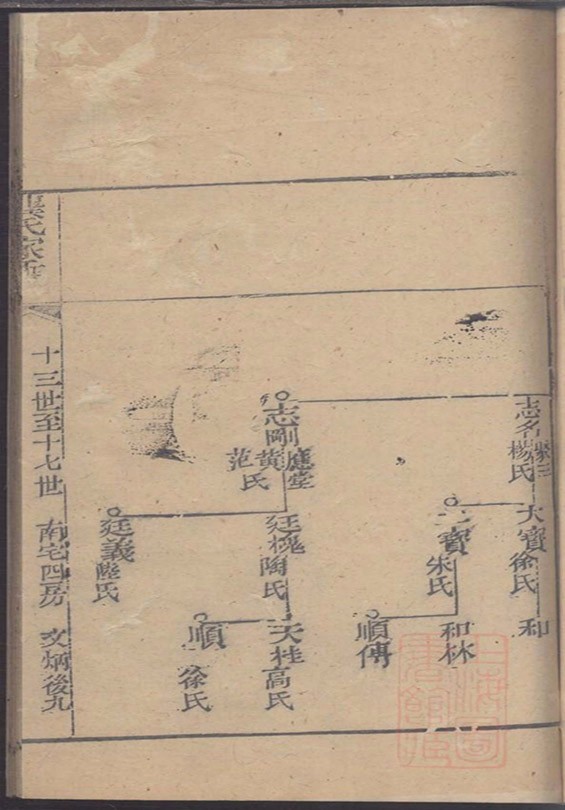 志名 楊氏
大寶 徐氏
和
二寶 朱氏
和林
順傳
志剛 應堂 黃 范 氏
廷槐 陶氏
天桂 高氏
順 徐氏
廷義 陸氏
氏家
十三世至十七世 南宅四房 文炳後九